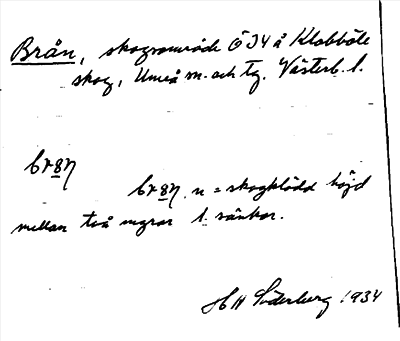 Brån, skogsområde Ö J4 å Klabböle
skog, Umeå sn. och tg. Västerb. l.
br8ƞ
br8ƞ. n = skogklädd höjd
mellan två myrar l. sänkor.
H H Söderberg 1934